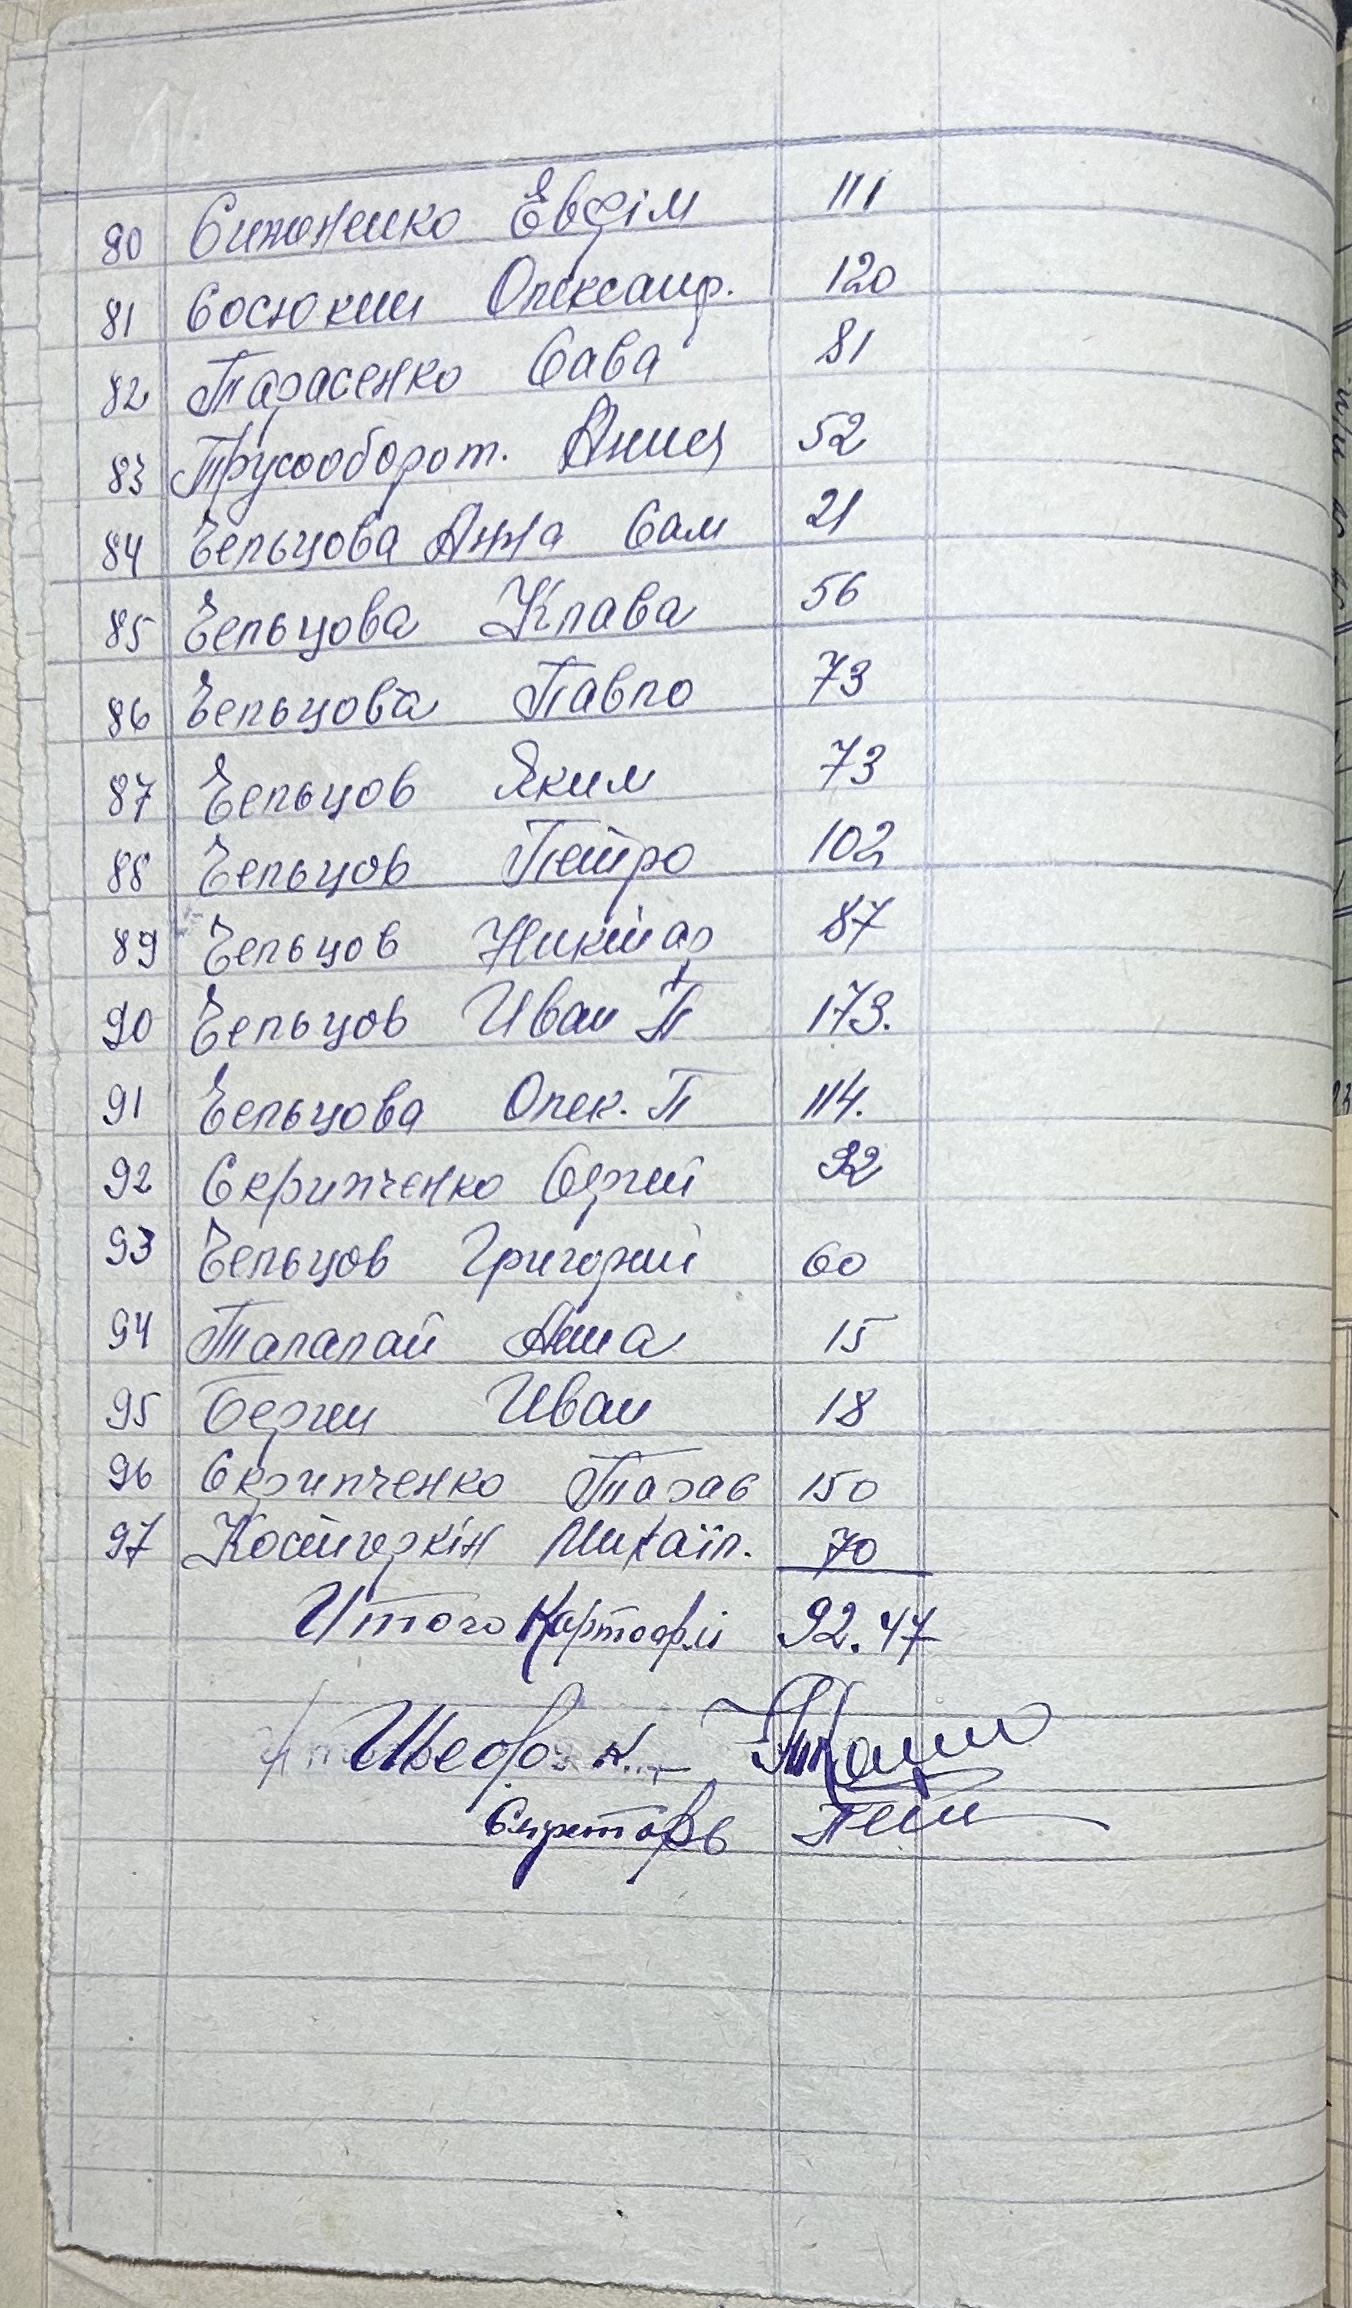 80 Симоненко Евфім 111
81 Сосюкин Олександ. 120
82 Тарасенко Сава 81
83 Трусооборот. Анна 52
84 Чельцова Анна Сам 21
85 Чельцова Клава 56
86 Чельцова Павло 73
87 Чельцов Яким 73
88 Чельцов Петро 102
89 Чельцов Никифор 87
90 Чельцов Иван П 173.
91 Чельцова Олек. П 114.
92 Скрипченко Сергий 92
93 Чельцов Григорий 60
94 Талалай Анна 15
95 Иван 18
96 Скрипченко Тарас 150
97 Костюркін Михаїл. 70
Итого Картофлі 92.47
Секретарь